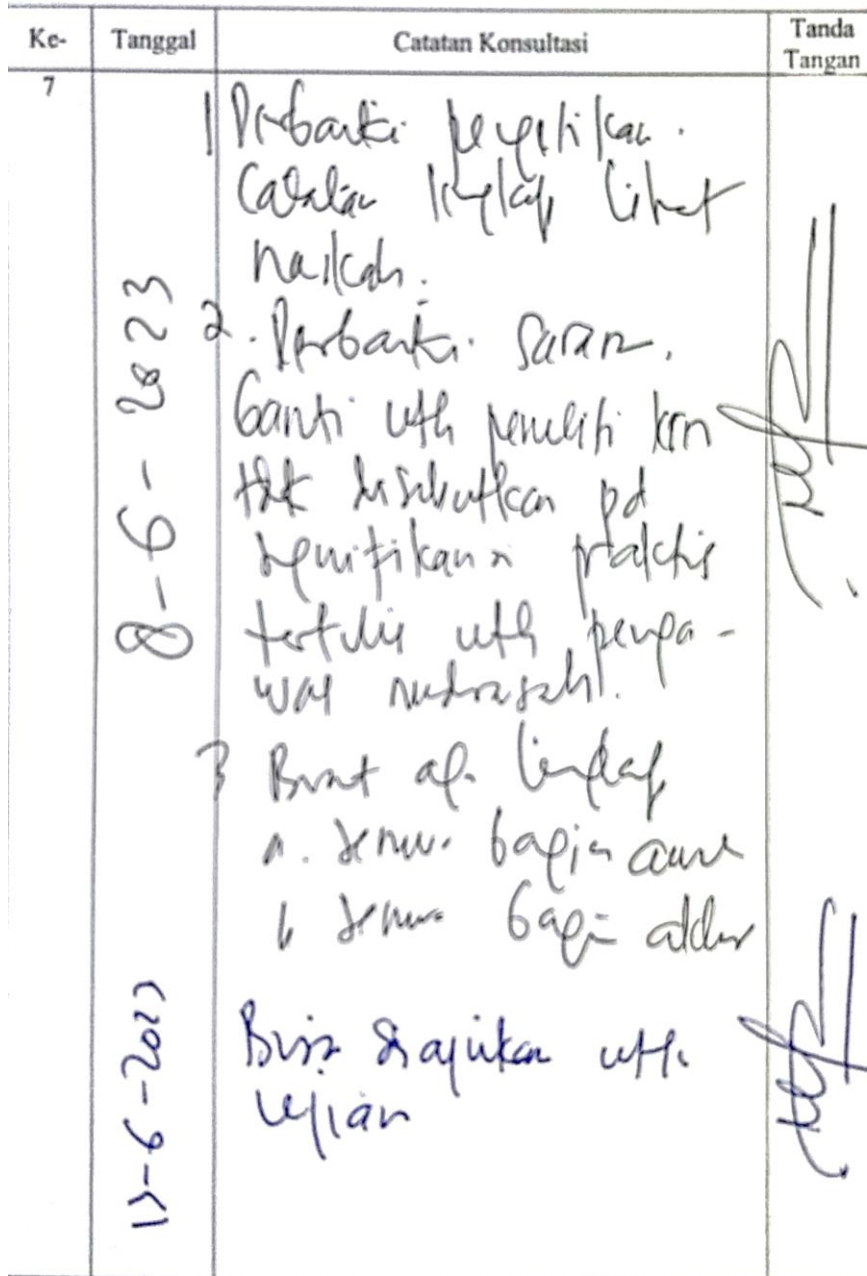 Ke-
Tanggal
Catatan Konsultasi
Tanda
Tangan
7
8-6-2023
1 Perbaiki pengetikan.
Catatan lengkap lihat
naskah.
2. Perbaiki saran.
Ganti utk peneliti krn
tdk disebutkan pd
signifikansi praktis
tertulis utk penga-
was madrasah.
3 Buat lengkap
a. semua bagian awal
b semua bagian akhir
-6-2023
Bisa diajukan utk
ujian